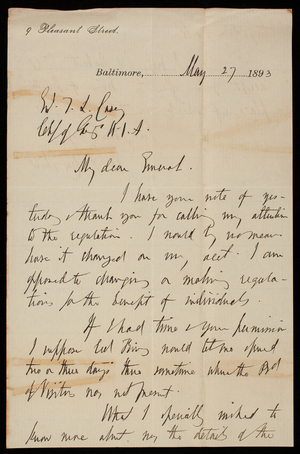 9 Pleasant Street.
Baltimore, May 27 1893
T. L. Casey
U.S.A.
My dear General.
I have your note of yes-
terday & thank you for calling my attention
to the regulation. I would by no means
have it changed on my acct. I am
opposed to changing or making regula-
tions for the benefit of individuals.
If I had time & your permission
I suppose Col would let me spend
two or three days there sometime when the Bd
of Visitors was not present.
What I specially wished to
know more about was the details of the